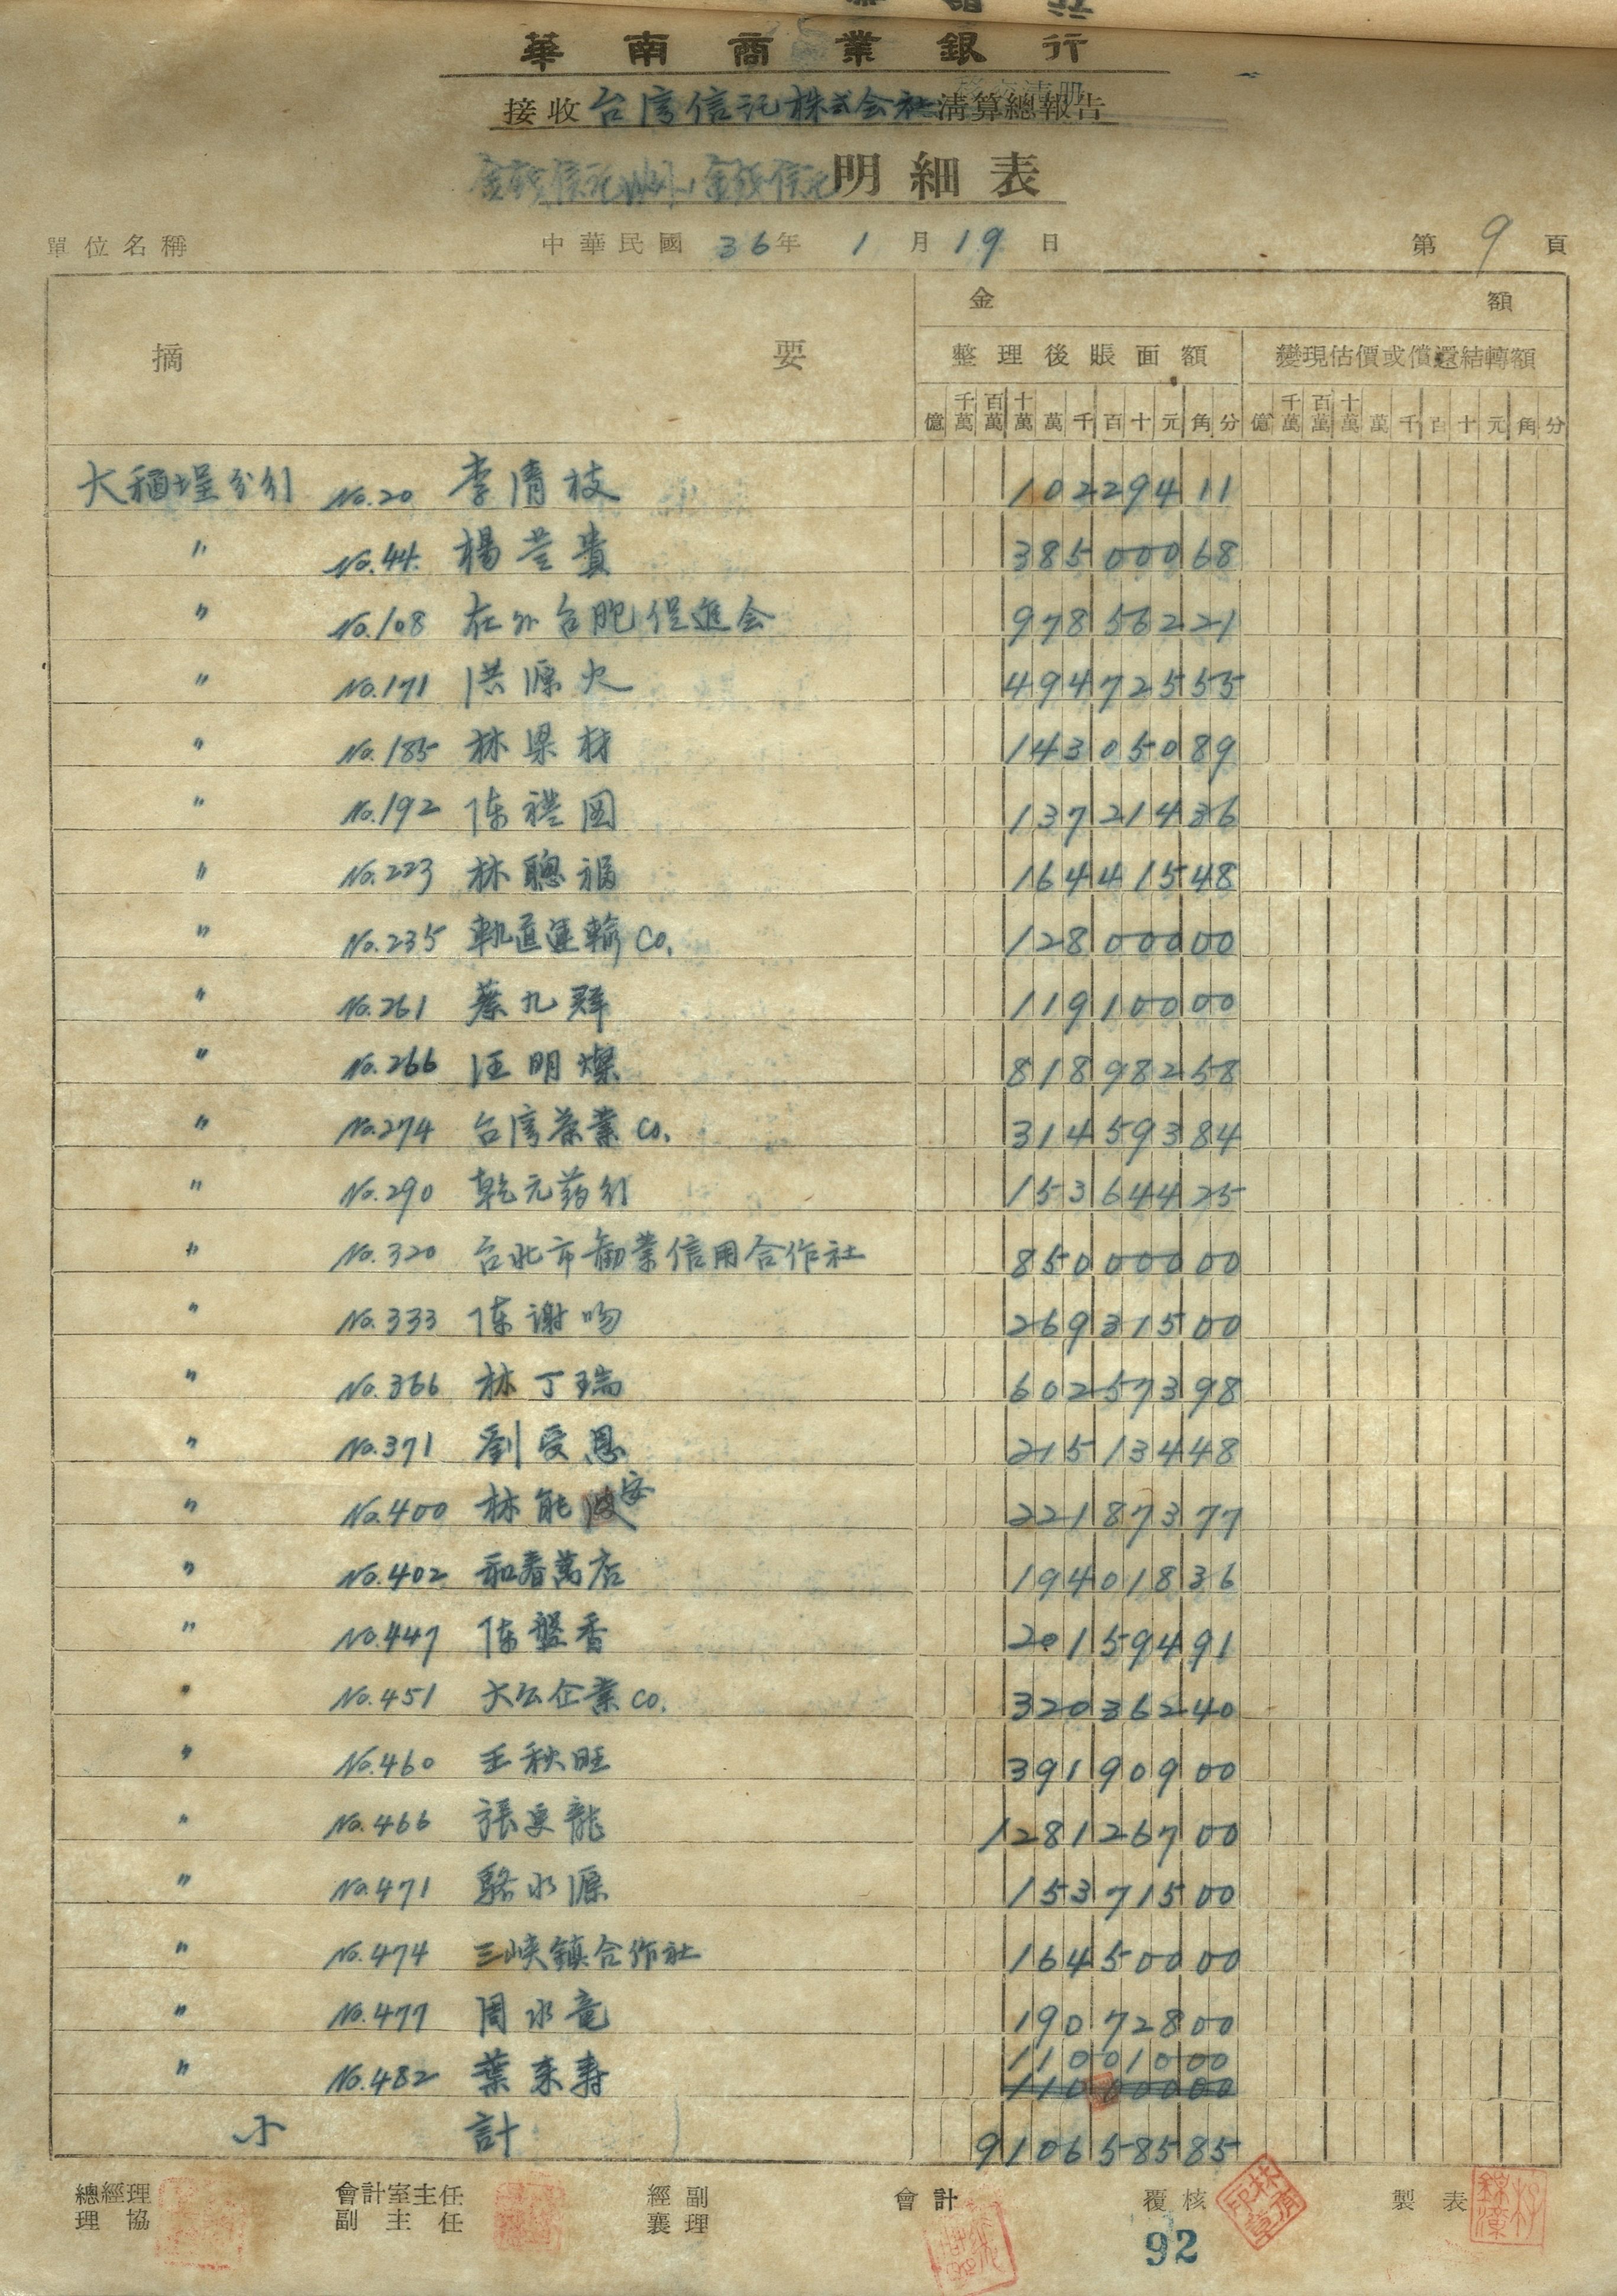 華南商業銀行
接收台湾信託株式会社清算總報告
金銭信託以外ノ金銭信託明細表
單位名稱 中華民國36年1月19日 第9頁
摘要 金額
整理後賬面額 變現估價或償還結轉額
億 千萬 百萬 十萬 萬 千 百 十 元 角 分 億 千萬 百萬 十萬 萬 千 百 十 元 角 分
大稻埕分行 No.20 李清枝 10229411
〃 No.44. 楊 貴 38500068
〃 No.108 在外台胞促進会 97856221
〃 No.171 洪源火 49472555
〃 No.185 林梁材 14305089
〃 No.192 陈禮 13721436
〃 No.223 林聰 16441548
〃 No.235 軌道運輸Co. 12800000
〃 No.261 蔡九 11910000
〃 No.266 汪明燦 81898258
〃 No.274 台湾茶業Co. 31459384
〃 No.290 乾元药行 15364425
〃 No.320 台北市勧業信用合作社 85000000
〃 No.333 陈谢吻 26931500
〃 No.366 林丁瑞 60257398
〃 No.371 劉受恩 21513448
〃 No.400 林能安 22187377
〃 No.402 和春 店 19401836
〃 No.447 陈盤香 20159491
〃 No.451 大公企業Co. 32036240
〃 No.460 王秋旺 39190900
〃 No.466 張 龍 128126700
〃 No.471 駱水源 15371500
〃 No.474 三峡鎮合作社 16450000
〃 No.477 周水竜 19072800
11001000
〃 No.482 葉来寿 11000000
小計 910658585
總經理 會計室主任 經副 會計 覆核 製表
協理 副主任 襄理
92